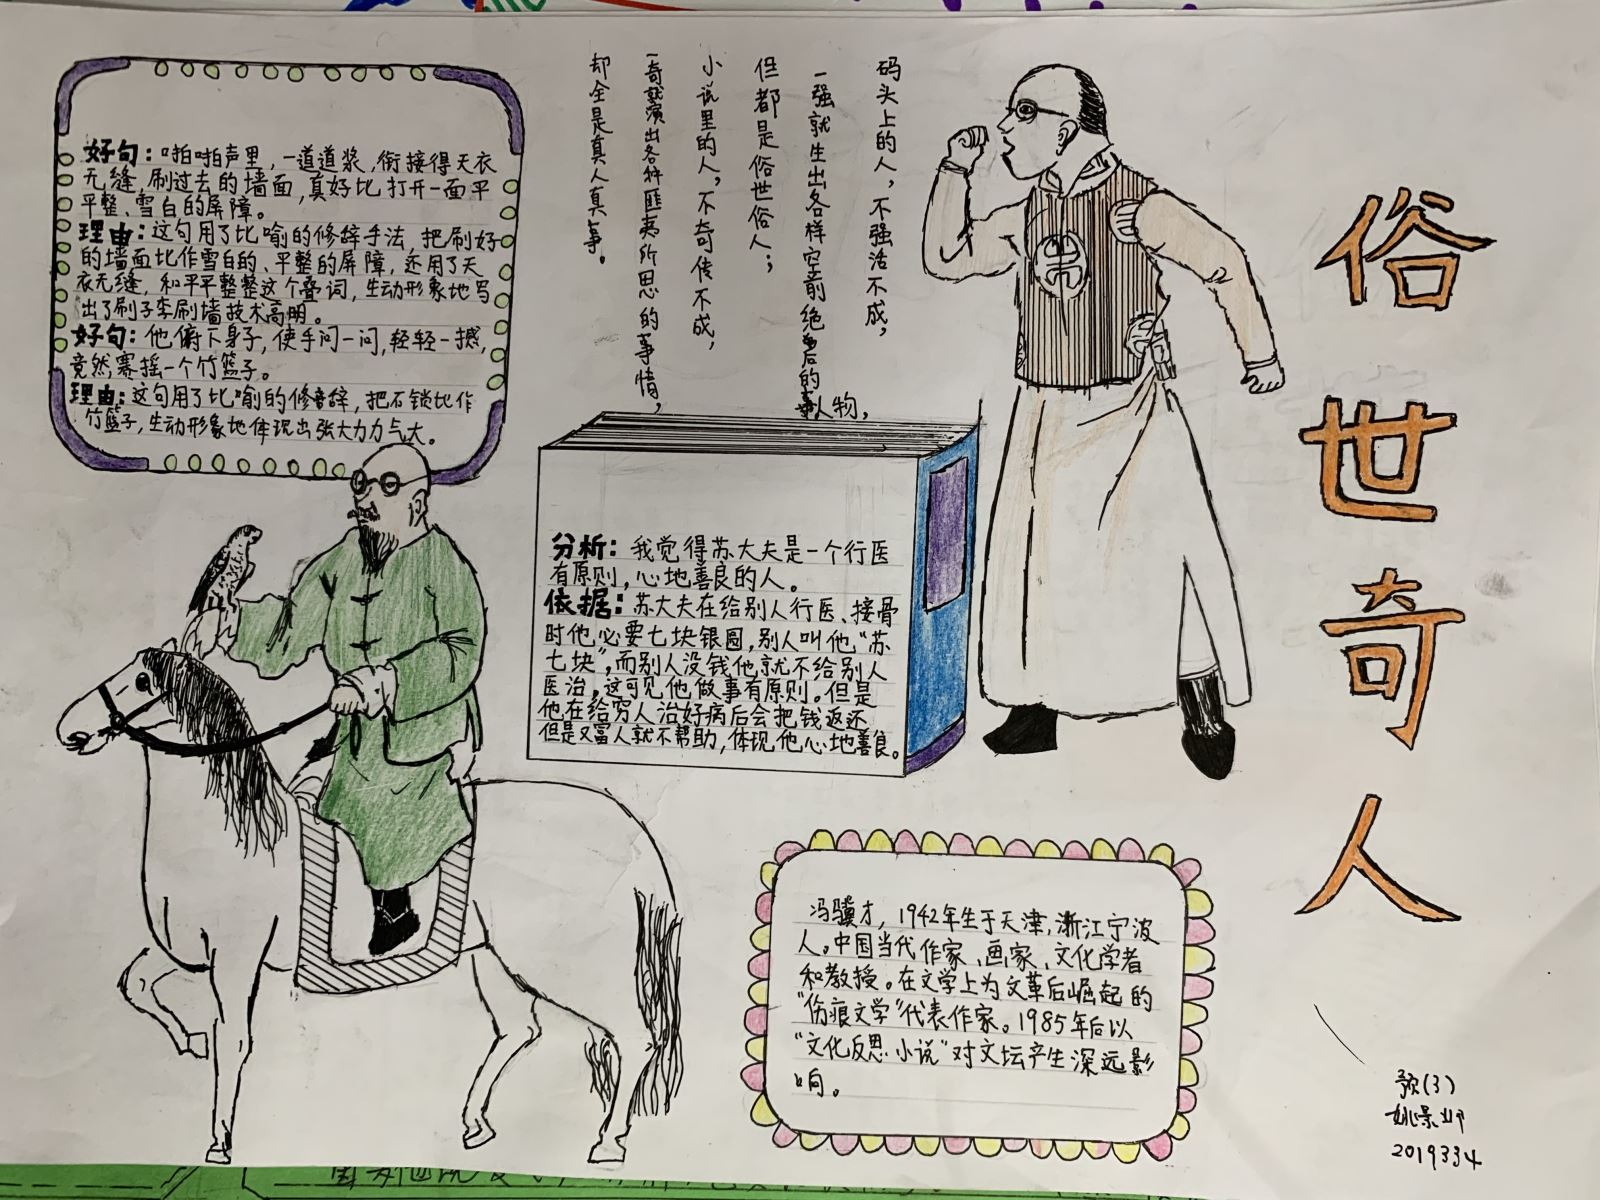 俗世奇人
码头上的人，不强活不成，
一强就生出各样空前绝后的人物，
但都是俗世俗人；
小说里的人，不奇传不成，
一奇就演出各种匪夷所思的事情，
却全是真人真事。
好句：啪啪声里，一道道浆，衔接得天衣
无缝，刷过去的墙面，真好比打开一面平
平整、雪白的屏障。
理由：这句用了比喻的修辞手法，把刷好
的墙面比作雪白的、平整的屏障，还用了天
衣无缝，和平平整整这个叠词，生动形象地写
出了刷子李刷墙技术高明。
好句：他俯下身子，使手问一问，轻轻一撼，
竟然赛摇一个竹篮子。
理由：这句用了比喻的修辞，把石锁比作
竹篮子，生动形象地体现出张大力力气大。
分析：我觉得苏大夫是一个行医
有原则，心地善良的人。
依据：苏大夫在给别人行医、接骨
时他必要七块银圆，别人叫他“苏
七块”，而别人没钱他就不给别人
医治。这可见他做事有原则。但是
他在给穷人治好病后会把钱返还
但是又富人就不帮助，体现他心地善良。
冯骥才，1942年生于天津，浙江宁波
人。中国当代作家、画家、文化学者
和教授。在文学上为文革后崛起的
“伤痕文学”代表作家。1985年后以
“文化反思小说”对文坛产生深远影
响。
预(3)
姚景
2019334